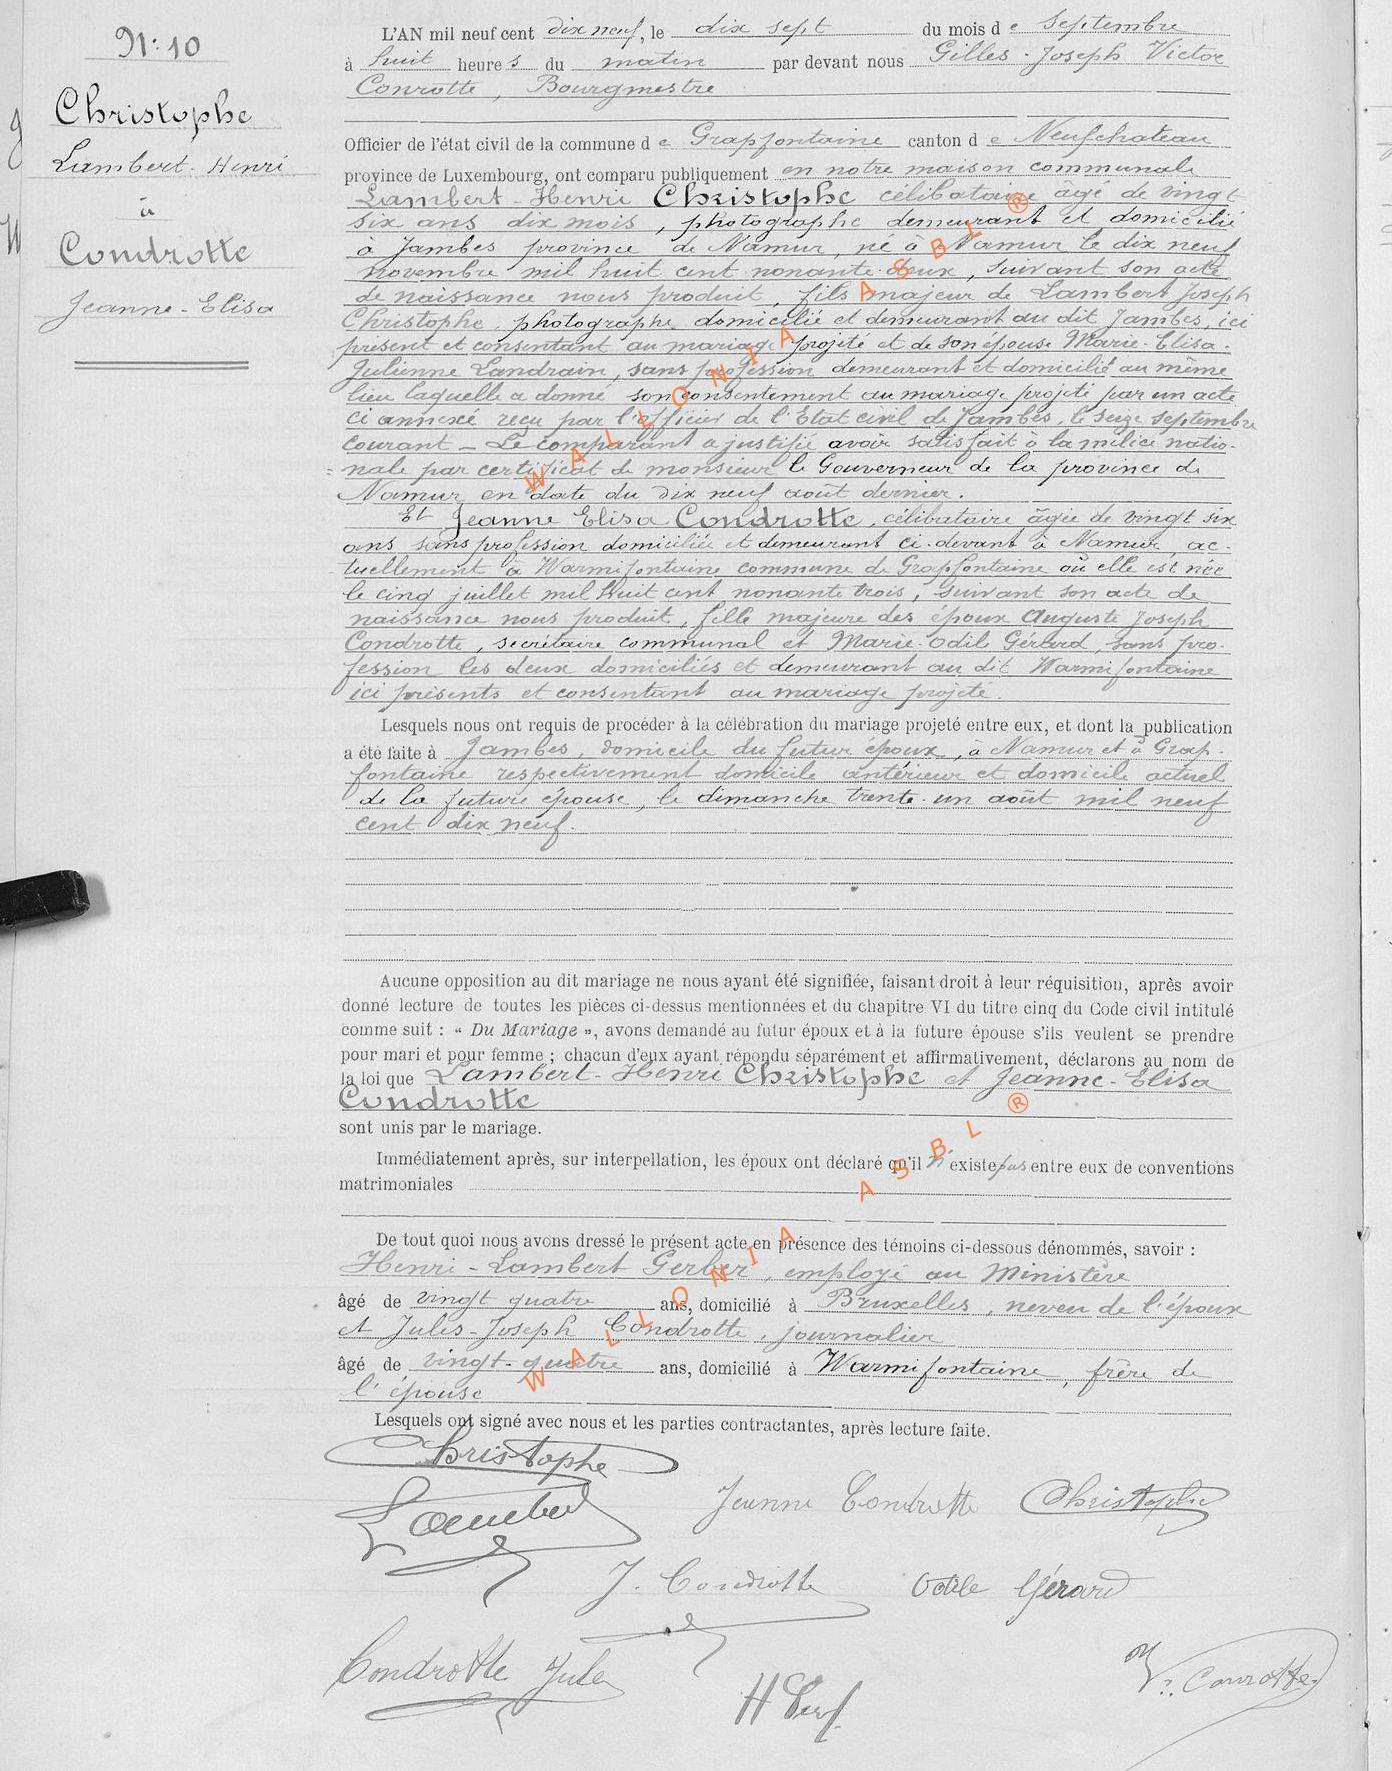 N: 10
Christophe
Lambert-Henri
à
Condrotte
Jeanne-Elisa
L'AN mil neuf cent dix neuf, le dix sept du mois de Septembre
à huit heures du matin par devant nous Gilles-Joseph Victor
Conrotte, Bourgmestre
Officier de l'état civil de la commune de Grapfontaine canton de Neufchateau
province de Luxembourg, ont comparu publiquement en notre maison communale
Lambert-Henri Christophe célibataire âgé de vingt
six ans dix mois, photographe demeurant et domicilié
à Jambes province de Namur, né à Namur le dix neuf
novembre mil huit cent nonante-deux, suivant son acte
de naissance nous produit, fils majeur de Lambert Joseph
Christophe, photographe domicilié et demeurant au dit Jambes, ici
présent et consentant au mariage projeté et de son épouse Marie-Elisa-
Julienne Landrain, sans profession demeurant et domicilié au même
lieu laquelle a donné son consentement au mariage projeté par un acte
ci annexé reçu par l'officier de l'Etat civil de Jambes, le seize septembre
courant - Le comparant a justifié avoir satisfait à la milice natio-
nale par certificat de monsieur le Gouverneur de la province de
Namur en date du dix neuf août dernier.
Et Jeanne Elisa Condrotte, célibataire âgée de vingt six
ans sans profession domiciliée et demeurant ci-devant à Namur, ac-
tuellement à Warmifontaine commune de Grapfontaine où elle est née
le cinq juillet mil huit cent nonante trois, suivant son acte de
naissance nous produit, fille majeure des époux Auguste Joseph
Condrotte, secrétaire communal et Marie-Odile Gérard, sans pro-
fession les deux domiciliés et demeurant au dit Warmifontaine
ici présents et consentant au mariage projeté.
Lesquels nous ont requis de procéder à la célébration du mariage projeté entre eux, et dont la publication
a été faite à Jambes, domicile du futur époux, à Namur et à Grap-
fontaine respectivement domicile antérieur et domicile actuel
de la future épouse, le dimanche trente-un août mil neuf
cent dix neuf.
Aucune opposition au dit mariage ne nous ayant été signifiée, faisant droit à leur réquisition, après avoir
donné lecture de toutes les pièces ci-dessus mentionnées et du chapitre VI du titre cinq du Code civil intitulé
comme suit : « Du Mariage », avons demandé au futur époux et à la future épouse s'ils veulent se prendre
pour mari et pour femme ; chacun d'eux ayant répondu séparément et affirmativement, déclarons au nom de
la loi que Lambert-Henri Christophe et Jeanne-Elisa
Condrotte
sont unis par le mariage.
Immédiatement après, sur interpellation, les époux ont déclaré qu'il n'existe pas entre eux de conventions
matrimoniales
De tout quoi nous avons dressé le présent acte en présence des témoins ci-dessous dénommés, savoir :
Henri-Lambert Gerber, employé au Ministère
âgé de vingt quatre ans, domicilié à Bruxelles, neveu de l'époux
et Jules-Joseph Condrotte, journalier
âgé de vingt-quatre ans, domicilié à Warmifontaine, frère de
l'épouse
Lesquels ont signé avec nous et les parties contractantes, après lecture faite.
Christophe
Lambert
Jeanne Condrotte Christophe
J. Condrotte Odile Gérard
Condrotte Jules
V. Conrotte
WALLONIA ASBL ®
WALLONIA ASBL ®